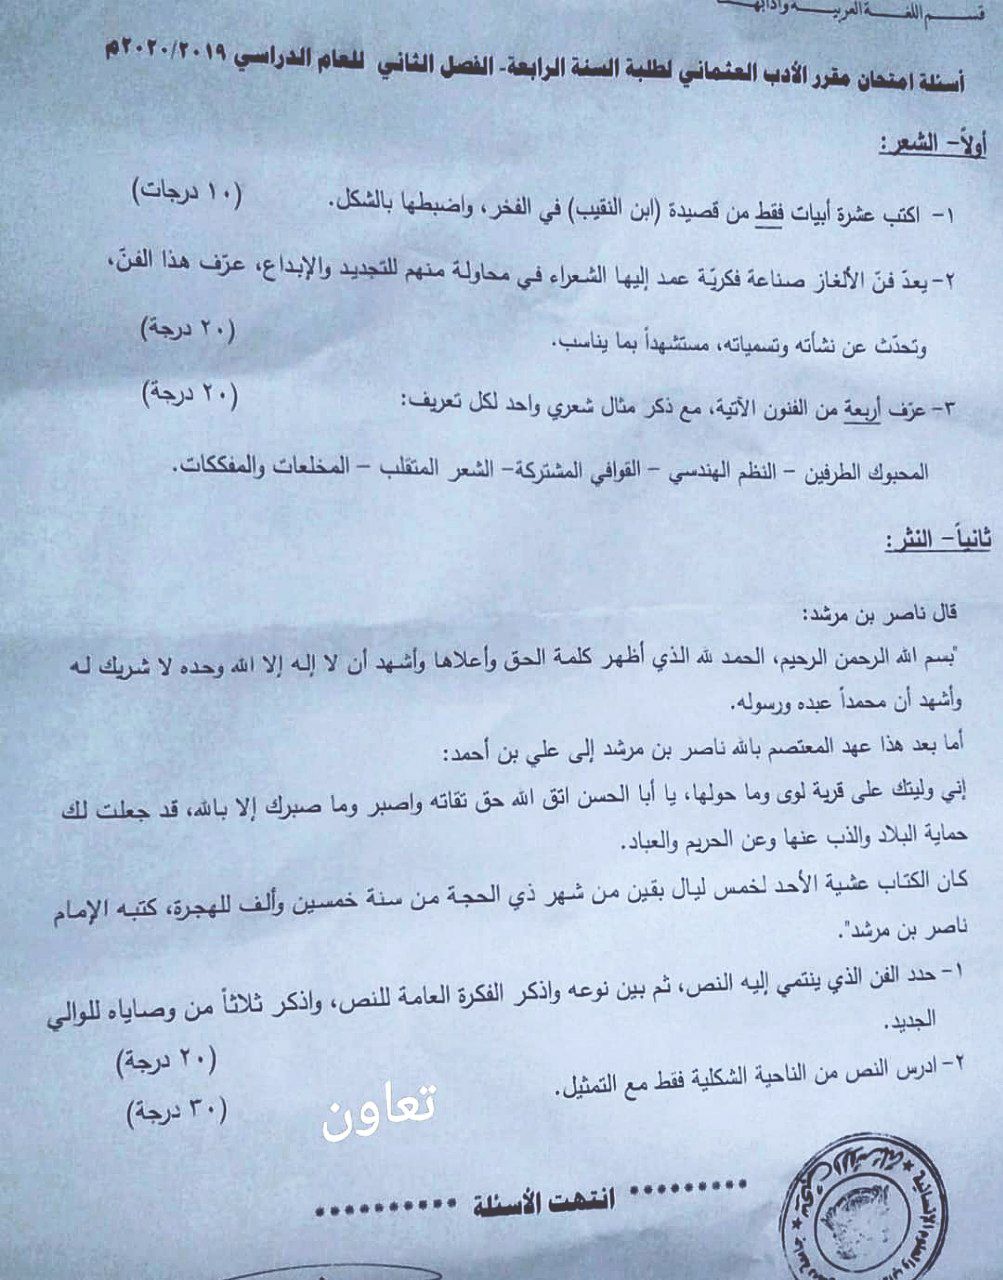 قسم اللغة العربية وآدابها
أسئلة امتحان مقرر الأدب العثماني لطلبة السنة الرابعة- الفصل الثاني للعام الدراسي ٢٠٢٠/٢٠١٩م
أولاً- الشعر:
١- اكتب عشرة أبيات فقط من قصيدة (ابن النقيب) في الفخر، واضبطها بالشكل. (١٠ درجات)
٢- يعدّ فنّ الألغاز صناعة فكريّة عمد إليها الشعراء في محاولة منهم للتجديد والإبداع، عرّف هذا الفنّ،
وتحدّث عن نشأته وتسمياته، مستشهداً بما يناسب. (٢٠ درجة)
٣- عرّف أربعة من الفنون الآتية، مع ذكر مثال شعري واحد لكل تعريف: (٢٠ درجة)
المحبوك الطرفين - النظم الهندسي - القوافي المشتركة- الشعر المتقلب - المخلعات والمفككات.
ثانياً- النثر:
قال ناصر بن مرشد:
"بسم الله الرحمن الرحيم، الحمد لله الذي أظهر كلمة الحق وأعلاها وأشهد أن لا إله إلا الله وحده لا شريك له
وأشهد أن محمداً عبده ورسوله.
أما بعد هذا عهد المعتصم بالله ناصر بن مرشد إلى علي بن أحمد:
إني وليتك على قرية لوى وما حولها، يا أبا الحسن اتق الله حق تقاته واصبر وما صبرك إلا بالله، قد جعلت لك
حماية البلاد والذب عنها وعن الحريم والعباد.
كان الكتاب عشية الأحد لخمس ليال بقين من شهر ذي الحجة من سنة خمسين وألف للهجرة، كتبه الإمام
ناصر بن مرشد".
١- حدد الفن الذي ينتمي إليه النص، ثم بين نوعه واذكر الفكرة العامة للنص، واذكر ثلاثاً من وصاياه للوالي
الجديد. (٢٠ درجة)
٢- ادرس النص من الناحية الشكلية فقط مع التمثيل. (٣٠ درجة)
تعاون
********* انتهت الأسئلة **********